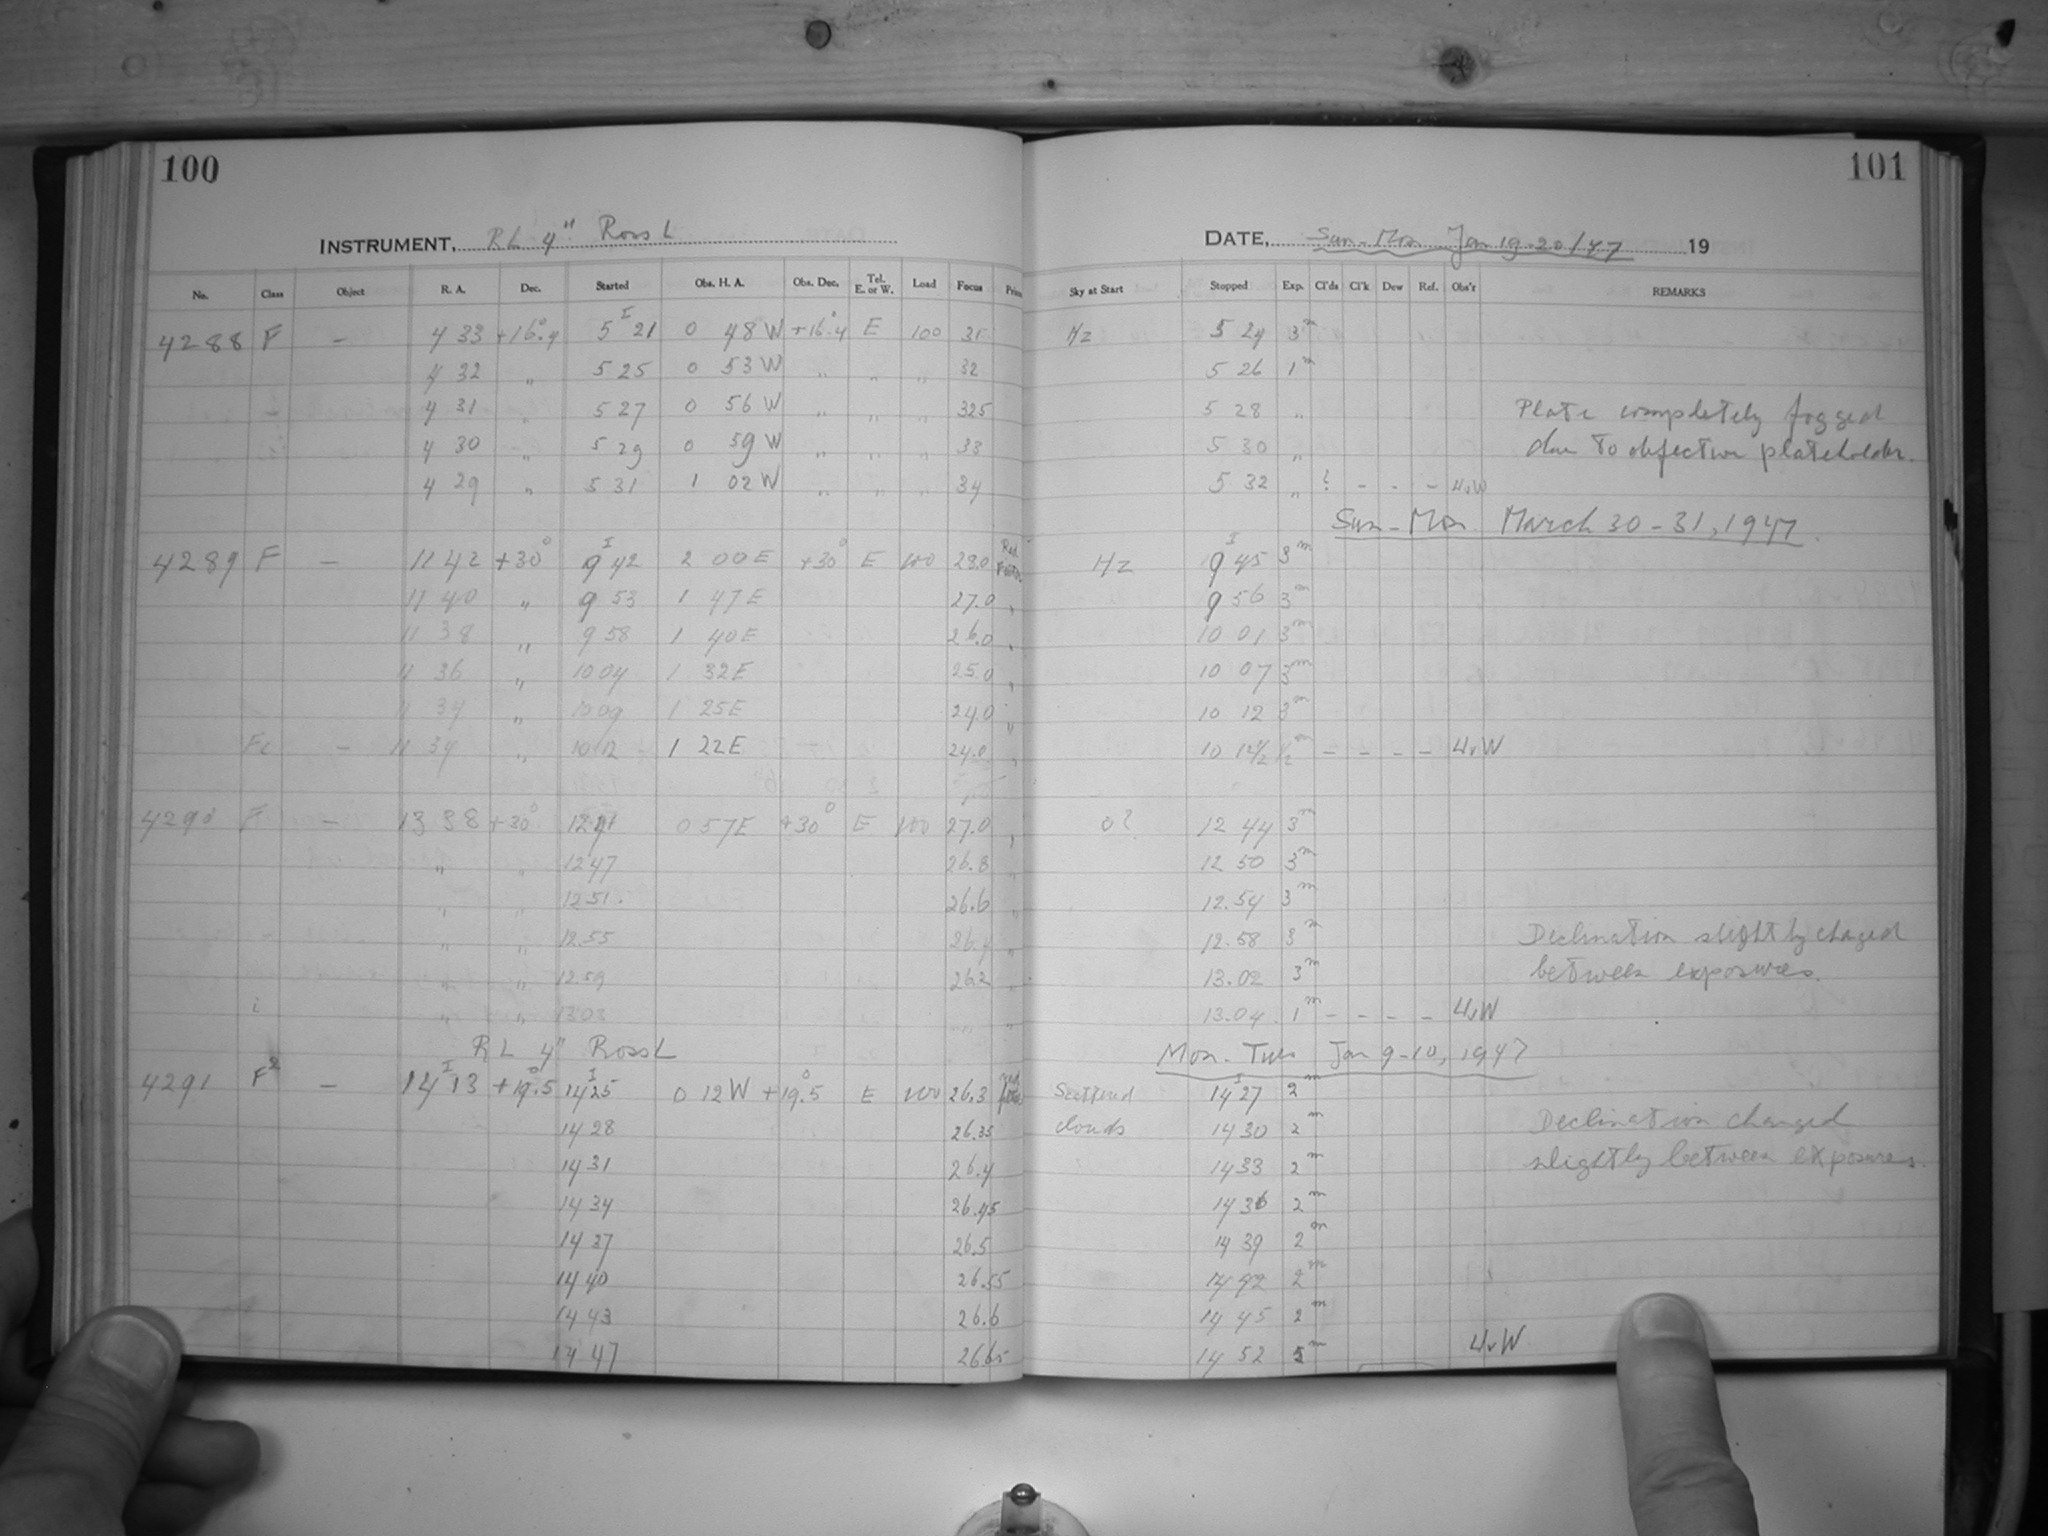 100
101
INSTRUMENT, RL 4" Ross L
DATE, Sun-Mon Jan 19-20/47 19
No. Class Object R. A. Dec. Started Obs. H. A. Obs. Dec. Tel. E. or W. Load Focus Sky at Start Stopped Exp. Cl'ds Cl'k Dew Ref. Obs'r REMARKS
4288 F – 4 33 +16°.4 5 I 21 0 48 W +16°.4 E 100 31 Hz 5 24 3m
4 32 " 5 25 0 53 W " " " 32 5 26 1m
4 31 " 5 27 0 56 W " " " 325 5 28 " Plate completely fogged
4 30 " 5 29 0 59 W " " " 33 5 30 " due to defective plateholder.
4 29 " 5 31 1 02 W " " " 34 5 32 " ? - - -
Sun-Mon March 30-31, 1947.
4289 F – 11 42 +30° 9 I 42 2 00 E +30° E 100 28.0 Red Filter Hz 9 I 45 3m
11 40 " 9 53 1 47 E 27.0 " 9 56 3m
11 38 " 9 58 1 40 E 26.0 " 10 01 3m
11 36 " 10 04 1 32 E 25.0 " 10 07 3m
11 34 " 10 09 1 25 E 24.0 " 10 12 3m
– 11 34 " 10 12 1 22 E 24.0 " 10 12½ ½m – – – –
4290 F – 13 38 +30° 12 41 0 57 E +30° E 100 27.0 " 0? 12 44 3m
" " 12 47 26.8 " 12 50 3m
" " 12 51. 26.6 " 12.54 3m
" " 12.55 26.4 " 12.58 3m Declination slightly chaged
" " 12.59 26.2 " 13.02 3m between exposures.
i " " 13 03 " " 13.04 1m – – – –
RL 4" Ross L Mon-Tues Jan 9-10, 1947
4291 F2 – 14 I 13 +19°.5 14 I 25 0 12 W +19°.5 E 100 26.3 red filter Scattered 14 I 27 2m
14 28 26.35 clouds 14 30 2m Declination changed
14 31 26.4 14 33 2m slightly between exposures.
14 34 26.45 14 36 2m
14 37 26.5 14 39 2m
14 40 26.55 14 42 2m
14 43 26.6 14 45 2m
14 47 26.65 14 52 5m